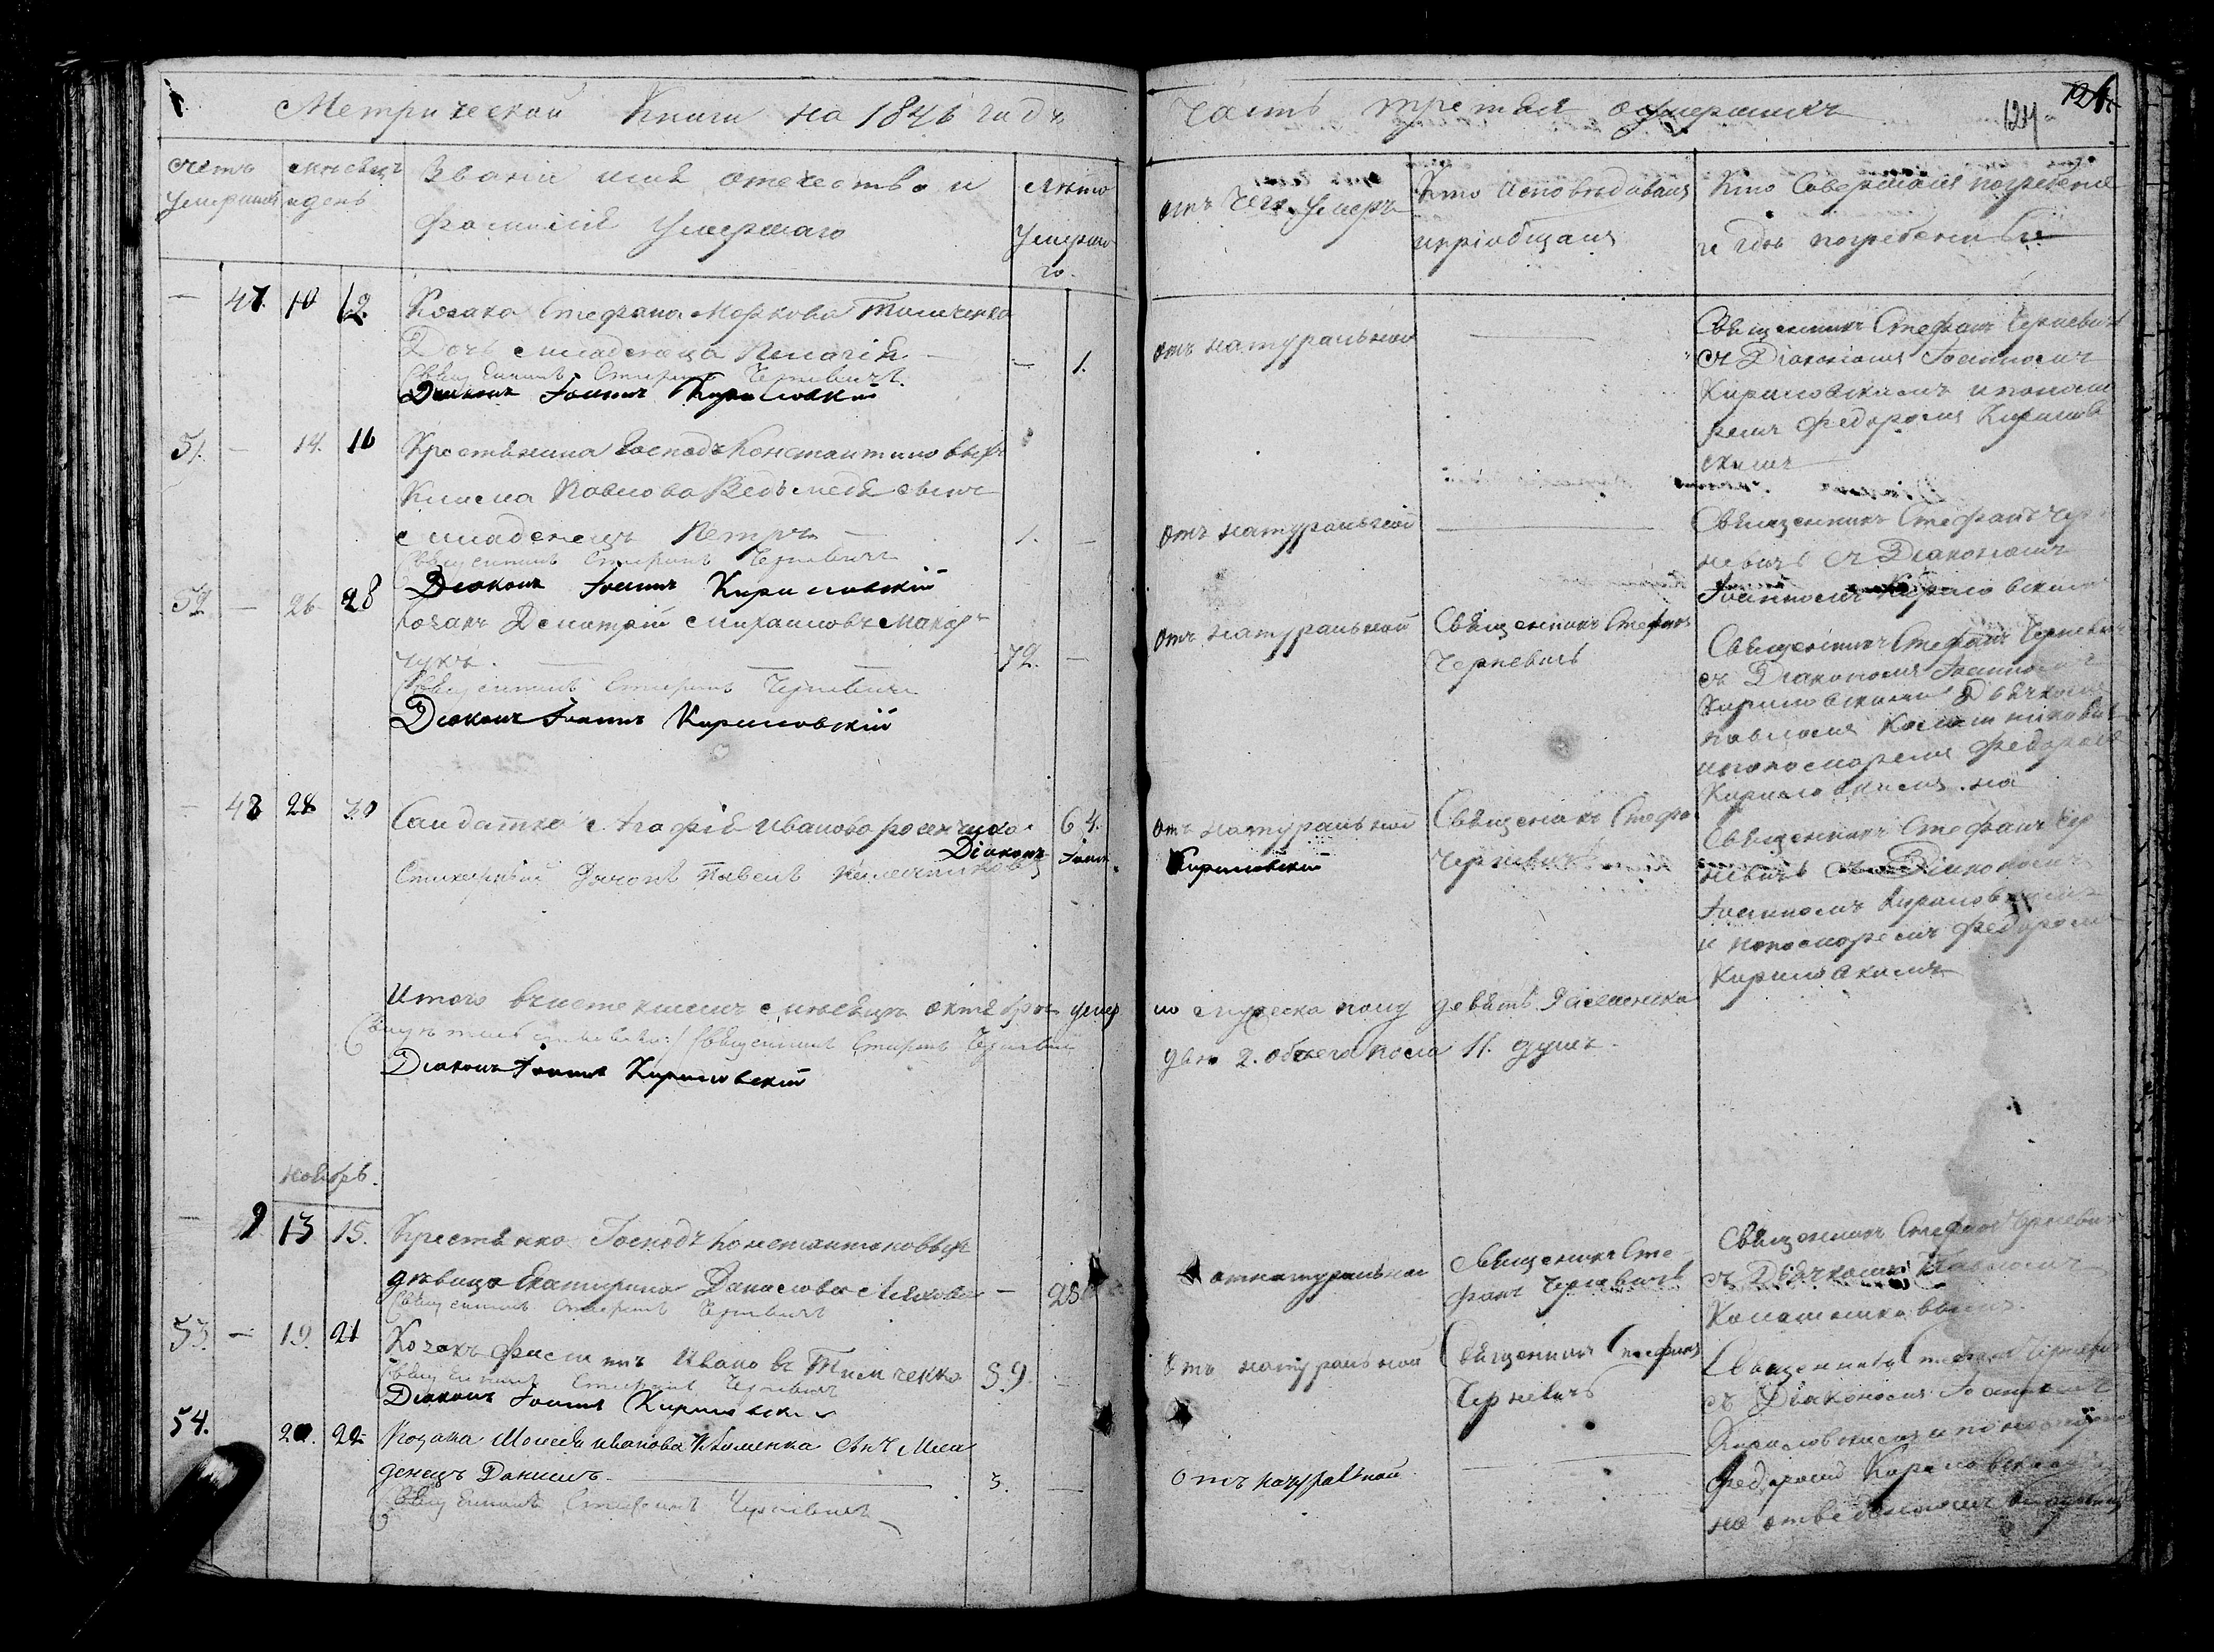 Метрической Книги на 1846 годъ
Часть третья о умершихъ
124
счетъ умершихъ
мѣсяцъ и день
Званiи имя отечество и
фамилiя Умершаго
Лѣто
Умерша
го.
отъ Чего Умеръ
Кто Исповѣдывалъ
и прiобщалъ
Кто Совершалъ погребенiе
и гдѣ погребены
— 47. 10 12. Козака Стефана Маркова Тимченка
Дочь младенца Пелагiя — — 1.
Священникъ Стефанъ Черневичъ
Дiаконъ Iоаннъ Кириловскiй
отъ натуральной —
Священникъ Стефанъ Черневичъ
съ Дiакономъ Iоанномъ
Кириловскимъ и понома
ремъ Федоромъ Кирилов
скимъ
51. — 14. 16 Крестянина Господъ Константиновыхъ
Климa Павлова Ведъмедя сынъ
младенецъ Петръ — 1. —
Священникъ Стефанъ Черневичъ
Дiаконъ Iоаннъ Кириловскiй
Отъ натуральной —
Священникъ Стефанъ Чер
невичъ съ Дiакономъ
Iоанномъ Кириловскимъ
52. — 26 28 Козакъ Димитрiй Михаиловъ
чукъ. — 72. —
Священникъ Стефанъ Черневичъ
Дiаконъ Iоаннъ Кириловскiй
отъ натуральной
Священникъ Стефанъ
Черневичъ
Священникъ Стефанъ Черневичъ
съ Дiакономъ Iоанномъ
Кириловскимъ Дьячкомъ
Павломъ
и пономаремъ Федоромъ
Кириловскимъ. на
— 48 28 30 Салдатка Агафiя Иванова 64.
Дiаконъ Iоаннъ Кириловскiй
Стихарный Дячокъ Павелъ
отъ натуральной
Священикъ Стефа
Черневичъ
Священникъ Стефанъ Чер
невичъ съ Дiакономъ
Iоанномъ Кириловскимъ
и пономаремъ Федоромъ
Кириловскимъ
Итого въ истекшемъ мѣсяцѣ октябрѣ умер
ло мужеска полу девять
двѣ 2. обоего пола 11. душъ.
Священникъ Стефанъ Черневичъ
Дiаконъ Iоаннъ Кириловскiй
ноябрь.
— 9 13 15. Крестянка Господъ Константиновыхъ
дѣвица Екатерина Данилова — 28
Священникъ Стефанъ Черневичъ
от натуральной
Священикъ Сте
фанъ Черневичъ
Священникъ Стефанъ Черневичъ
съ Дьячкомъ Павломъ
53. — 19. 21 Козакъ Филипъ Ивановъ Тимченко 59. —
Священникъ Стефанъ Черневичъ
Дiаконъ Iоаннъ Кириловскiй
Отъ натуральной
Священникъ Стефанъ
Черневичъ
Священникъ Стефанъ Черневичъ
съ Дiакономъ Iоанномъ
Кириловскимъ и пономаремъ
Федоромъ Кириловскимъ
на отведенномъ
54. 20. 22 Козака Моисея Иванова сынъ Мла
денецъ Данiилъ — 3. —
Священникъ Стефанъ Черневичъ
отъ натуральной —